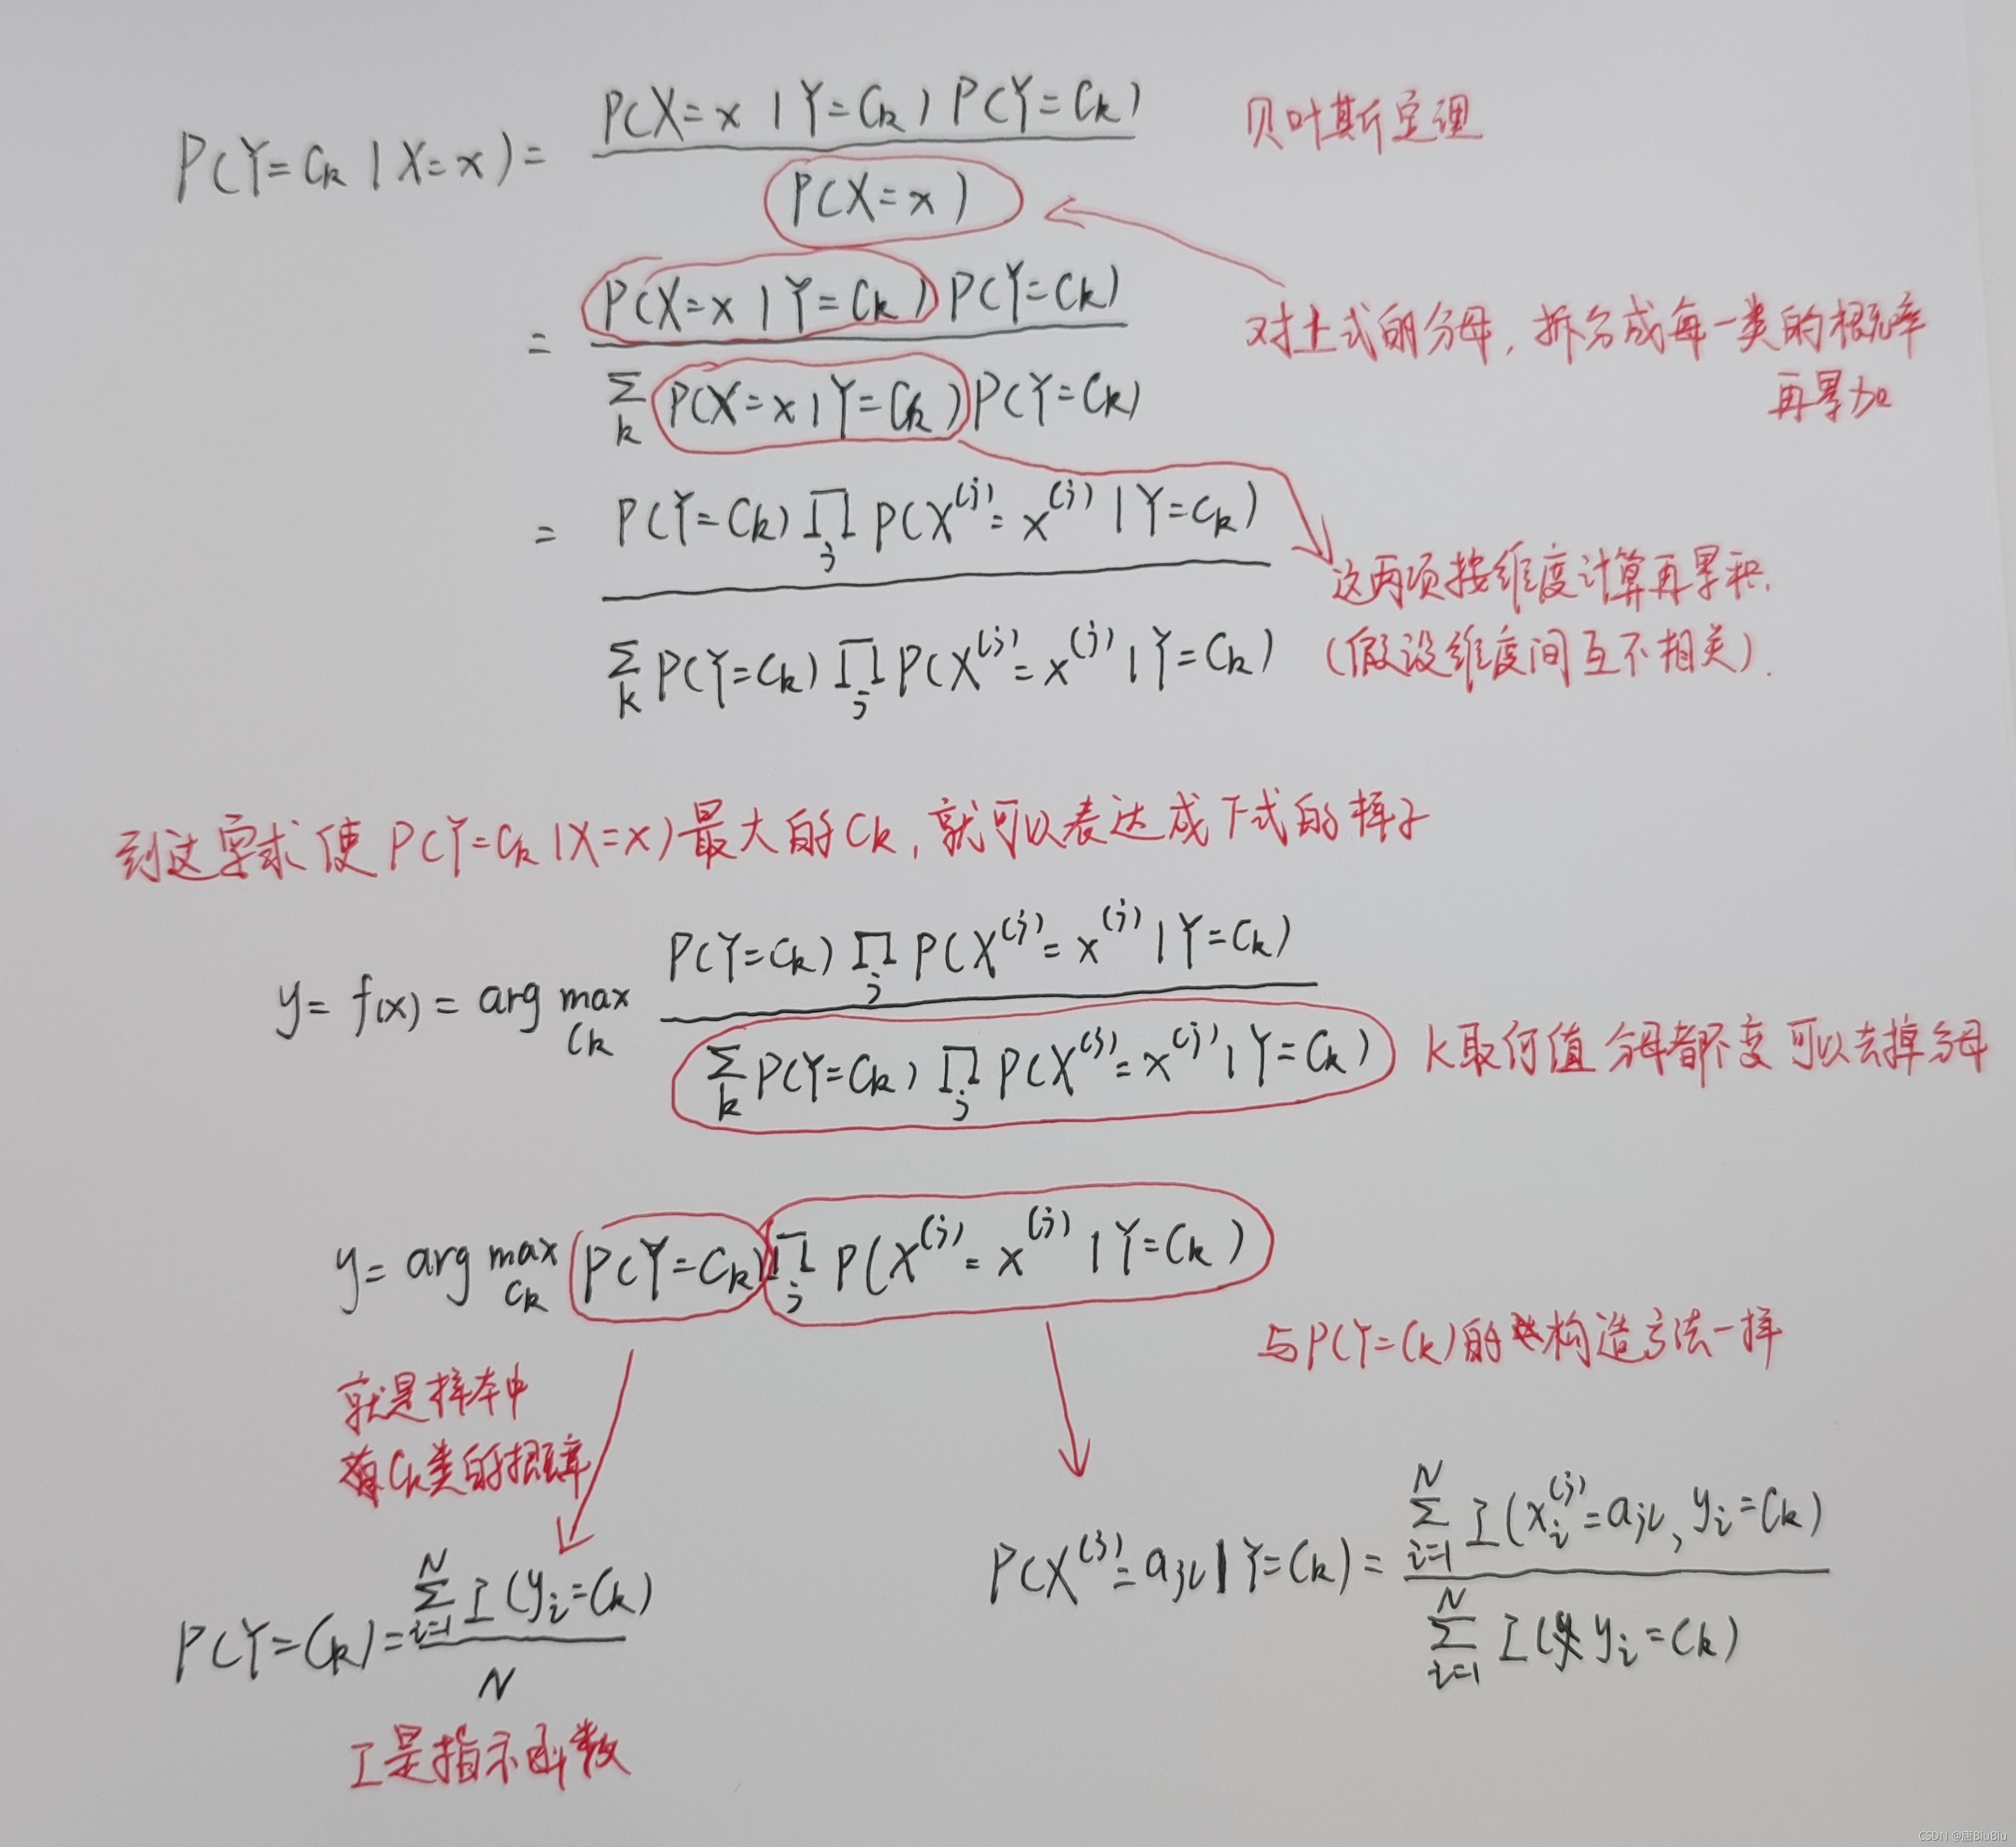 P(Y=Ck | X=x) = P(X=x | Y=Ck) P(Y=Ck) / P(X=x)
贝叶斯定理
= P(X=x | Y=Ck) P(Y=Ck) / Σk P(X=x | Y=Ck) P(Y=Ck)
对上式的分母,拆分成每一类的概率
再累加
= P(Y=Ck) ∏j P(X^(j)=x^(j) | Y=Ck) / Σk P(Y=Ck) ∏j P(X^(j)=x^(j) | Y=Ck)
这两项按维度计算再累积.
(假设维度间互不相关).
到这 求使P(Y=Ck | X=x)最大的Ck,就可以表达成下式的样子
y = f(x) = arg max Ck P(Y=Ck) ∏j P(X^(j)=x^(j) | Y=Ck) / Σk P(Y=Ck) ∏j P(X^(j)=x^(j) | Y=Ck)
k取何值 分母都不变 可以去掉分母
y = arg max Ck P(Y=Ck) ∏j P(X^(j)=x^(j) | Y=Ck)
与P(Y=Ck)的构造方法一样
就是样本中
有Ck类的概率
P(Y=Ck) = Σ i=1 N I(yi=Ck) / N
P(X^(j)=ajl | Y=Ck) = Σ i=1 N I(xi^(j)=ajl, yi=Ck) / Σ i=1 N I(yi=Ck)
I是指示函数
CSDN @唐BiuBiu